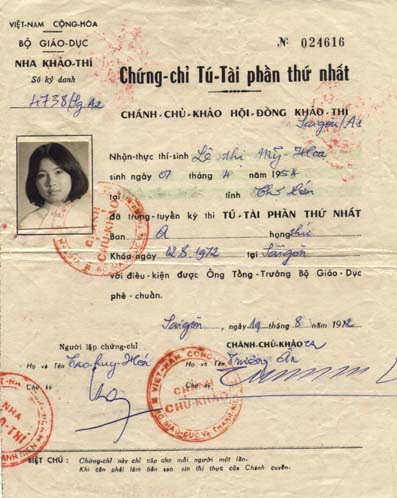 VIỆT-NAM CỘNG-HÒA
BỘ GIÁO-DỤC
NHA KHẢO-THÍ
Số ký danh
4738/Sg A2
№ 024616
Chứng-chỉ Tú-Tài phần thứ nhất
CHÁNH-CHỦ-KHẢO HỘI-ĐỒNG KHẢO-THÍ
Saigon/A1
Nhận-thực thí-sinh Lê thị Mỹ-Hoa
sinh ngày 07 tháng 4 năm 1954
tại tỉnh
đã trúng-tuyển kỳ thi TÚ-TÀI PHẦN THỨ NHẤT
Ban A hạng thứ
Khóa ngày 02.8.1972 tại Saigon
với điều-kiện được Ông Tổng-Trưởng Bộ Giáo-Dục
phê-chuẩn.
Saigon, ngày 19 tháng 8 năm 1972
Người lập chứng-chỉ
CHÁNH-CHỦ-KHẢO
Họ và Tên
Họ và Tên Trương Ân
Chữ ký
Chữ ký
CHÁNH
CHỦ-KHẢO
VIỆT-NAM CỘNG-HÒA
CHỦ-KHẢO
NHA
KHẢO-THÍ
BIỆT CHÚ : Chứng-chỉ này chỉ cấp cho mỗi người một lần.
Khi cần phải làm bản sao, xin thị thực của Chánh quyền.